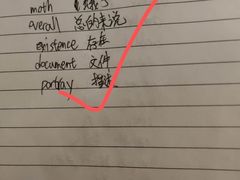 moth
overall 总的来说
existence 存在
document 文件
portray 描述